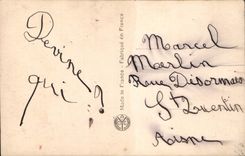 Devine
qui ??
Made in France - Fabriqué en France
Marcel
Marlin
Rue Désormais
St Quentin
Aisne